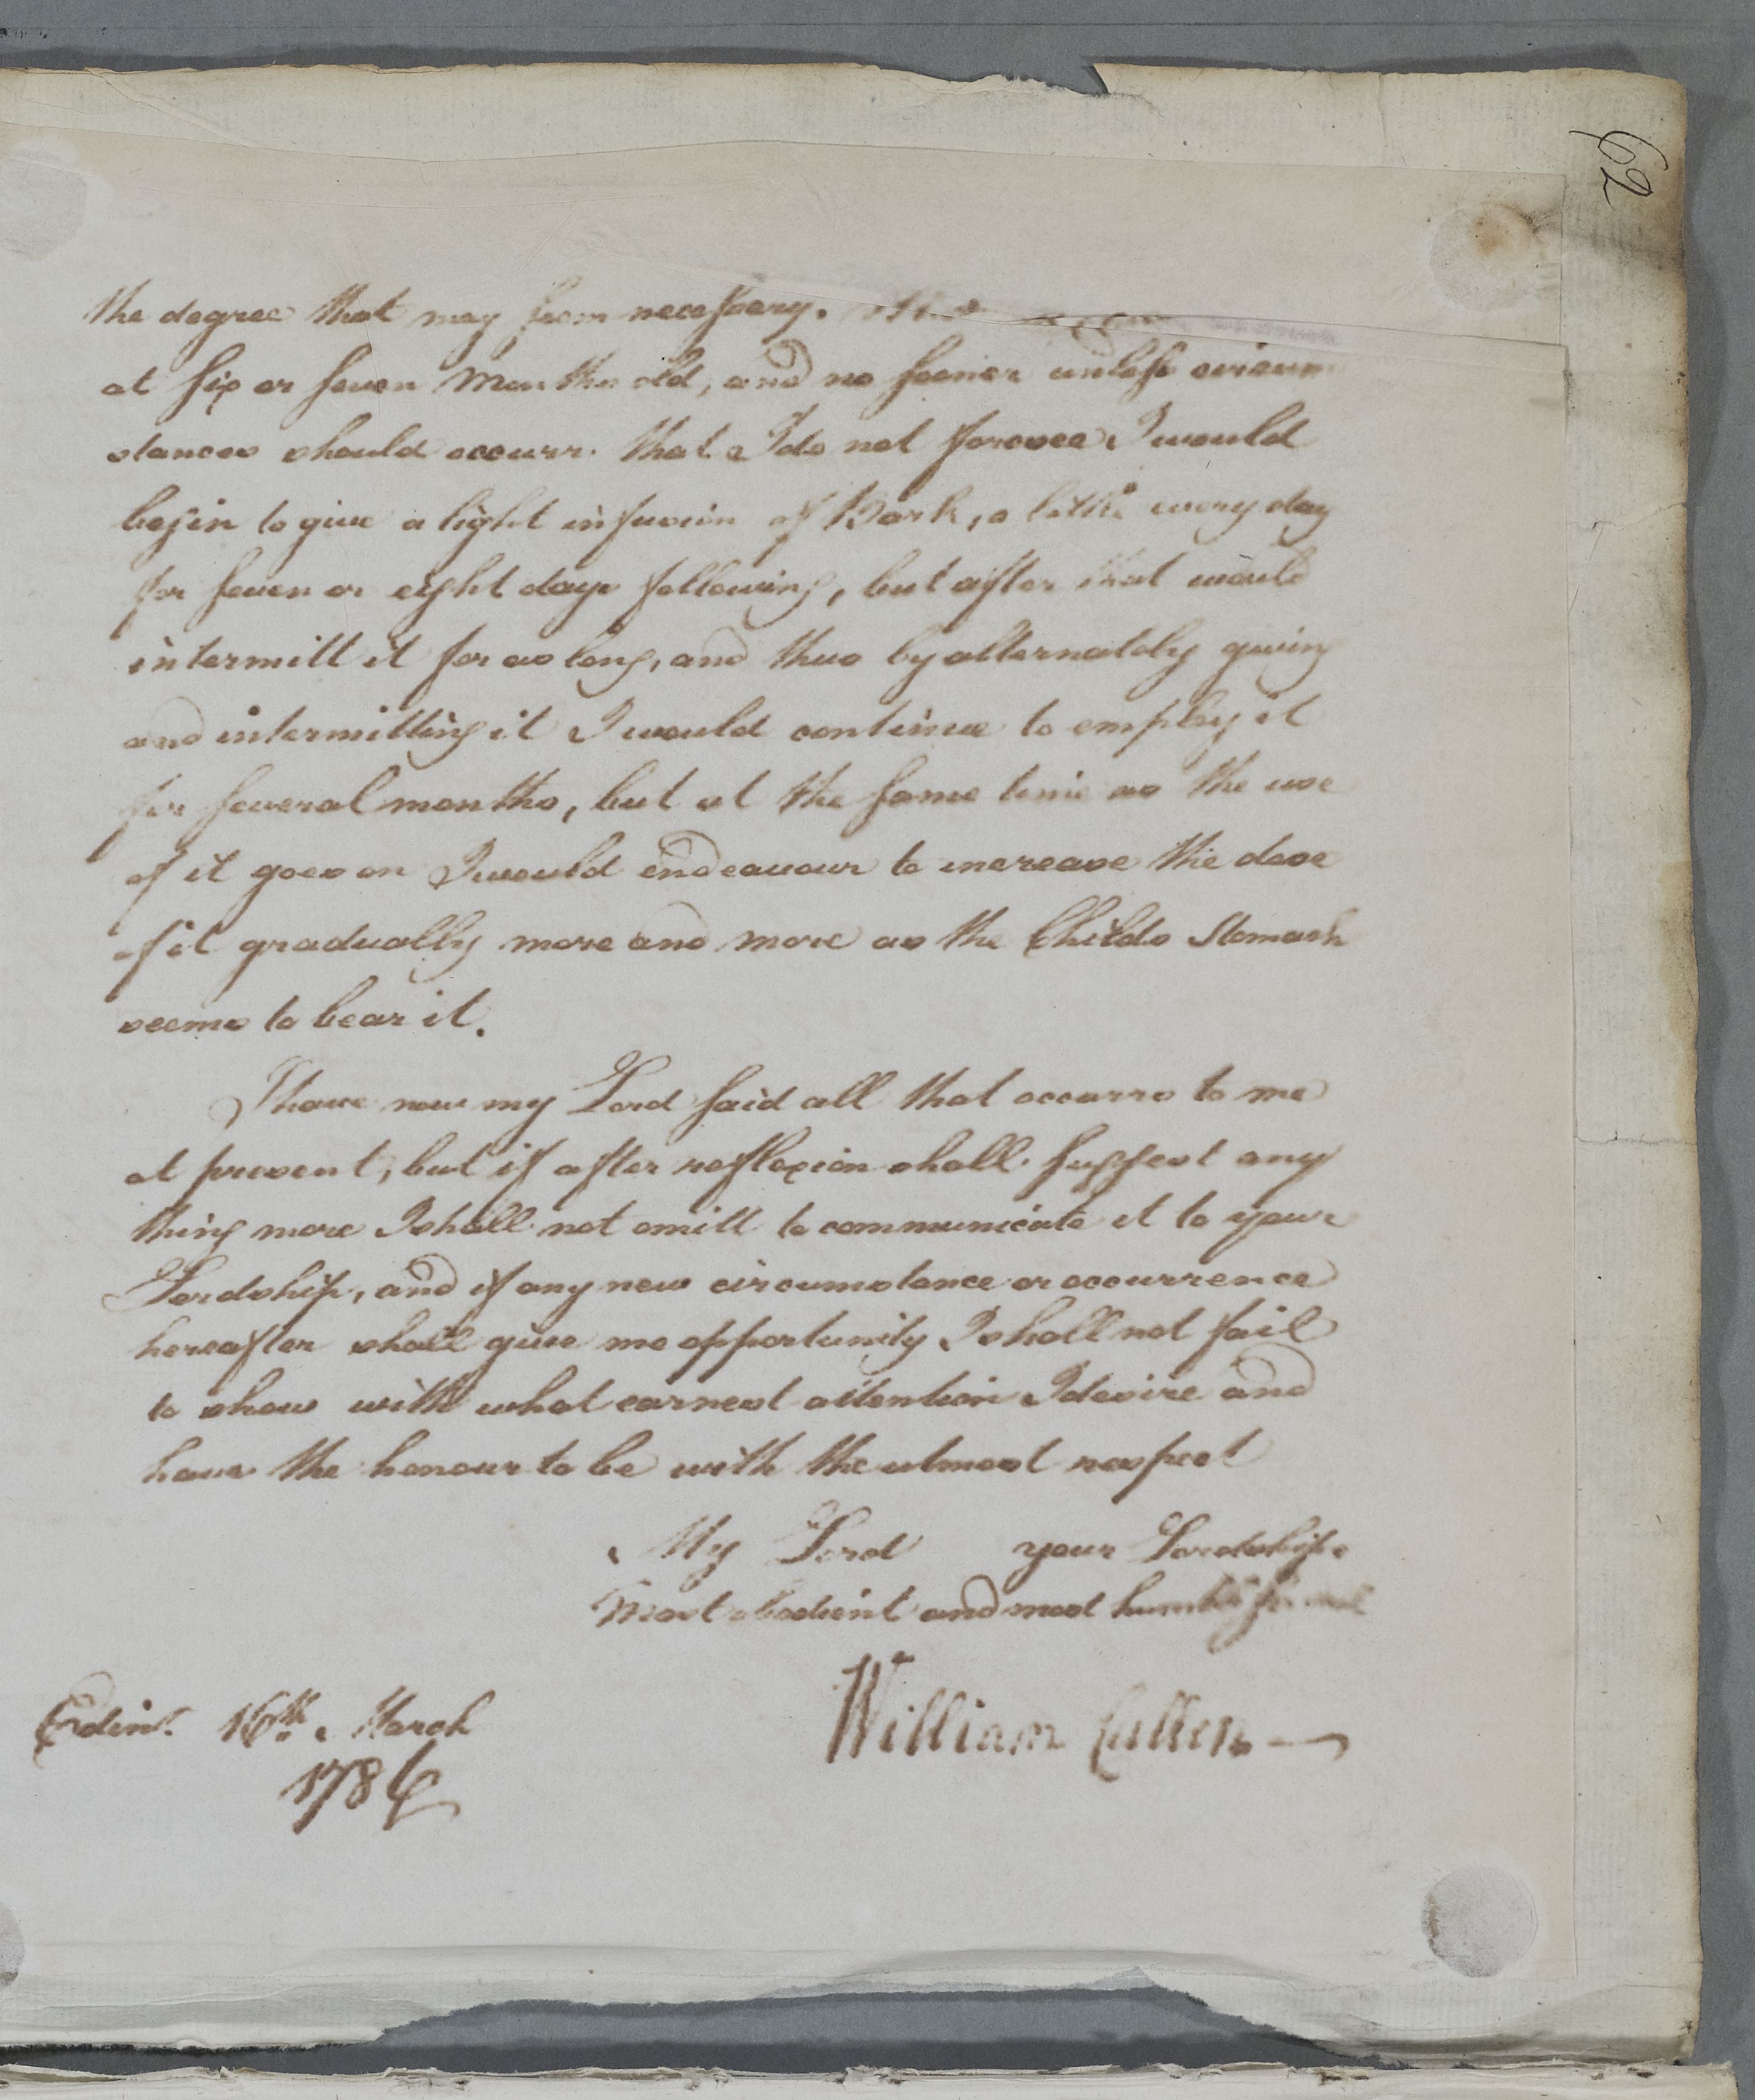 62
the degree that may seem necessary.
at six or seven Months old, and no sooner unless circum
stances should occurr that I do not foresee I would
begin to give a light infusion of Bark, a little every day
for seven or eight days following, but after that would
intermitt it for as long, and thus by alternately giving
and intermitting it I would continue to employ it
for several months, but at the same time as the use
of it goes on I would endeavour to increase the dose
of it gradually more and more as the Childs Stomach
seems to bear it.
I have now my Lord said all that occurrs to me
at present, but if after reflexion shall suggest any
thing more I shall not omitt to communicate it to your
Lordship, and if any new circumstance or occurrence
hereafter shall give me opportunity I shall not fail
to show with what earnest attention I desire and
have the honour to be with the utmost respect
My Lord your Lordships
Most obedient and most humble
William Cullen
Edinr. 16th. March
1786